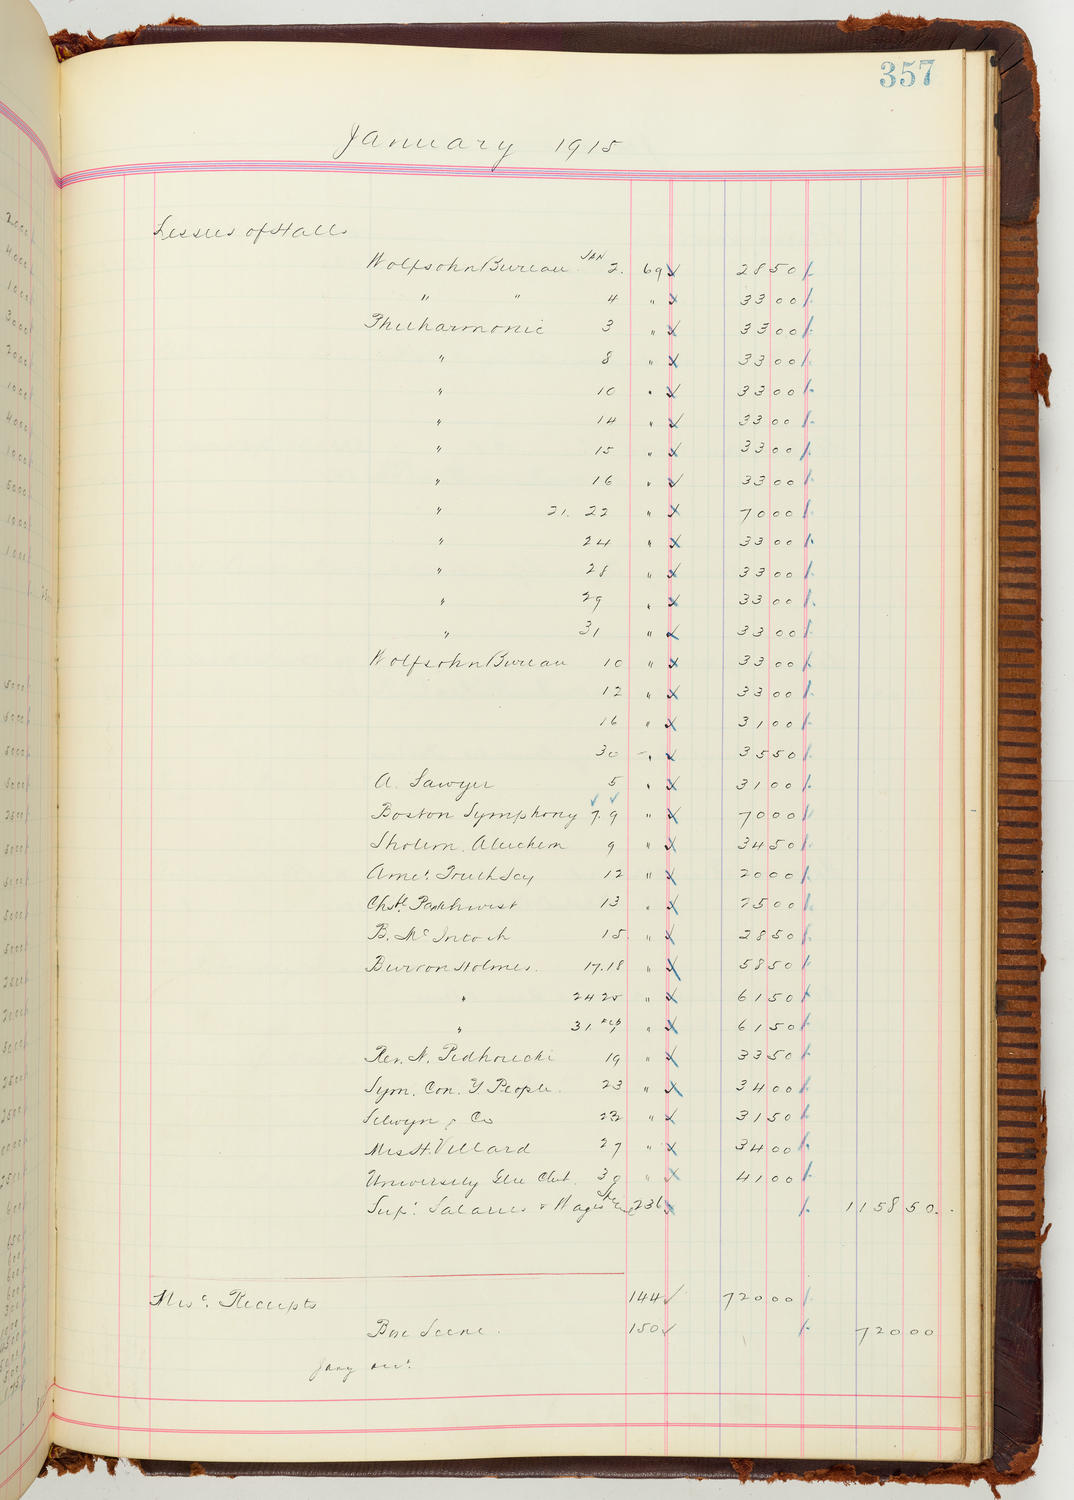 357
January 1915
Lessees of Hall
Wolfsohn Bureau Jan 2. 69 2850
" " 4 " 3300
Philharmonic 3 " 3300
" 8 " 3300
" 10 " 3300
" 14 " 3300
" 15 " 3300
" 16 " 3300
" 21. 22 " 7000
" 24 " 3300
" 28 " 3300
" 29 " 3300
" 31 " 3300
Wolfsohn Bureau 10 " 3300
12 " 3300
16 " 3100
30 " 3550
A. Sawyer 5 " 3100
Boston Symphony 7. 9 " 7000
Sholem. Aleichem 9 " 3450
Amer. Truth Socy 12 " 2000
Chas. Parkhurst 13 " 2500
B. McIntosh 15 " 2850
Burton Holmes. 17.18 " 5850
" 24 25 " 6150
" 31. Feb 1 " 6150
Rev. N. 19 " 3350
Sym. Con. Y. People. 23 " 3400
Selwyn & Co 23 " 3150
Mrs H. Villard 27 " 3400
University Glee Club. 30 " 4100
Sup. Salaries & Wages 236 115850.
Misc. Receipts 144 72000
Box Scene. 150 72000
Jany